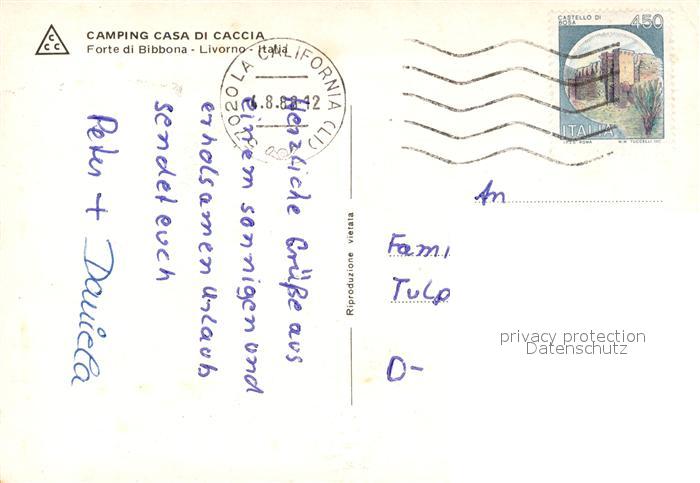 CCC
CAMPING CASA DI CACCIA
Forte di Bibbona - Livorno - Italia
57020 LA CALIFORNIA (LI)
CASTELLO DI BOSA
450
ITALIA
I.P.Z.S. ROMA
Herzliche Grüße aus
einem sonnigen und
erholsamen Urlaub
sendet euch
Peter + Daniela
Riproduzione vietata
An
Fami
Tulp
D-
privacy protection
Datenschutz